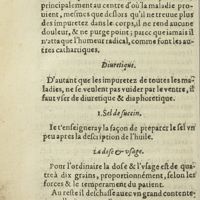 principalement au centre d'où la maladie pro-
uient, mesmes que deslors qu'il ne treuue plus
des impuretez dans le corps, il ne rend aucune
douleur, & ne purge point; parce que jamais il
n'attaque l'humeur radical, comme font les au-
tres cathartiques.
Diuretique.
D'autant que les impuretez de toutes les ma-
ladies, ne se veulent pas vuider par le ventre, il
faut vser de diuretique & diaphoretique.
1. Sel de succin.
Ie t'enseigneray la façon de preparer le sel vn
peu apres la description de l'huile.
La dose & vsage.
Pour l'ordinaire la dose & l'vsage est de qua-
tre à dix grains, proportionnément, selon les
forces & le temperament du patient.
Au reste il deschasse auec vn grand contente-